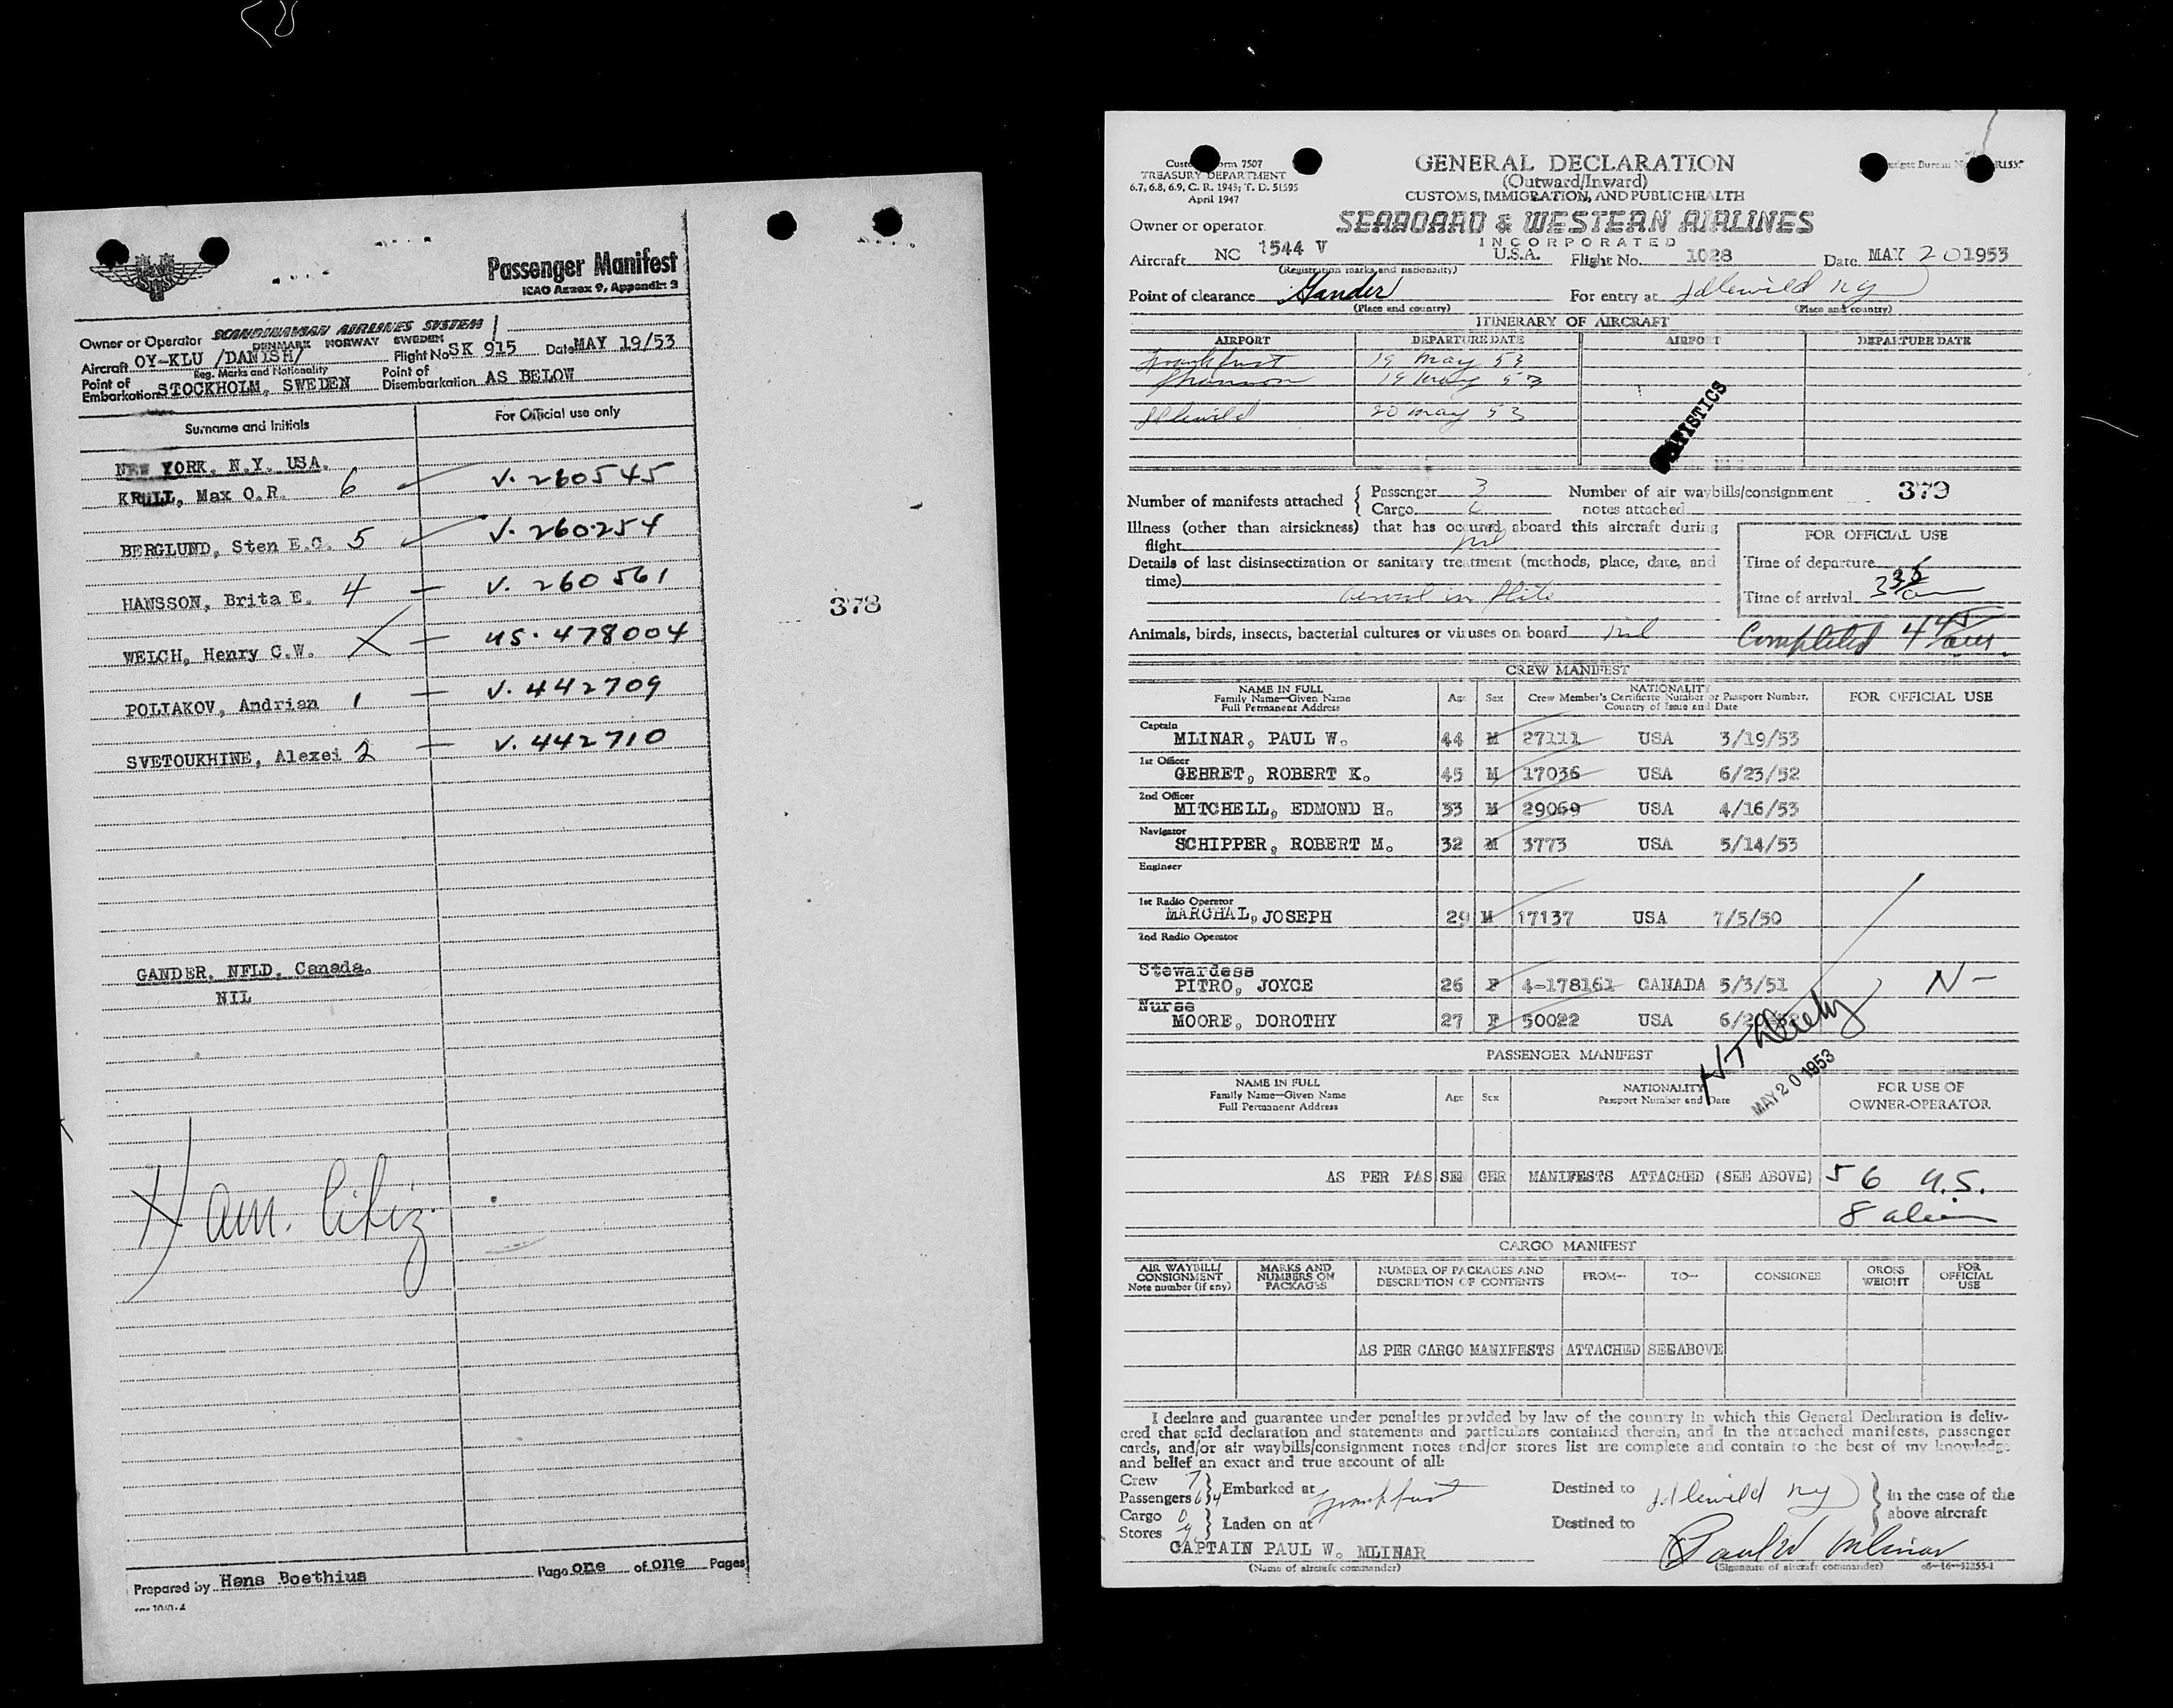 Passenger Manifest
ICAO Annex 9, Appendix 3
Owner or Operator SCANDINAVIAN AIRLINES SYSTEM
DENMARK NORWAY SWEDEN
Aircraft OY-KLU /DANISH/ Flight No SK 915 Date MAY 19/53
Reg. Marks and Nationality
Point of Embarkation STOCKHOLM, SWEDEN Point of Disembarkation AS BELOW
Surname and Initials For Official use only
NEW YORK. N.Y. USA.
KRULL, Max O.R. 6 V. 260545
BERGLUND, Sten E.C. 5 V. 260254
HANSSON, Brita E. 4 — V. 260561
WELCH, Henry C.W. X — US. 478004
POLIAKOV, Andrian 1 — V. 442709
SVETOUKHINE, Alexei 2 — V. 442710
378
GANDER. NFLD. Canada.
NIL
X am. Citiz.
Prepared by Hans Boethius Page one of one Pages
Customs Form 7507
TREASURY DEPARTMENT
6.7, 6.8, 6.9, C. R. 1943; T. D. 51595
April 1947
GENERAL DECLARATION
(Outward/Inward)
CUSTOMS, IMMIGRATION, AND PUBLIC HEALTH
Owner or operator SEABOARD & WESTERN AIRLINES
INCORPORATED
Aircraft NC 1544 V U.S.A. Flight No. 1028 Date MAY 20 1953
(Registration marks and nationality)
Point of clearance Gander For entry at Idlewild NY
(Place and country) (Place and country)
ITINERARY OF AIRCRAFT
AIRPORT DEPARTURE DATE AIRPORT DEPARTURE DATE
Frankfurt 19 May 53
Shannon 19 May 53
Idlewild 20 May 53
STATISTICS
Number of manifests attached { Passenger 3 Number of air waybills/consignment 379
Cargo notes attached
Illness (other than airsickness) that has occured aboard this aircraft during
flight nil
FOR OFFICIAL USE
Details of last disinsectization or sanitary treatment (methods, place, date, and
time) aerosol in flite
Time of departure
Time of arrival 335 am
Animals, birds, insects, bacterial cultures or viruses on board nil Completed 445 am.
CREW MANIFEST
NAME IN FULL
Family Name—Given Name
Full Permanent Address
Age Sex
NATIONALITY
Crew Member's Certificate Number or Passport Number,
Country of Issue and Date
FOR OFFICIAL USE
Captain
MLINAR, PAUL W. 44 M 27111 USA 3/19/53
1st Officer
GEHRET, ROBERT K. 45 M 17036 USA 6/23/52
2nd Officer
MITCHELL, EDMOND H. 33 M 29069 USA 4/16/53
Navigator
SCHIPPER, ROBERT M. 32 M 3773 USA 5/14/53
Engineer
1st Radio Operator
MARCHAL, JOSEPH 29 M 17137 USA 7/5/50
2nd Radio Operator
Stewardess
PITRO, JOYCE 26 F 4-178161 CANADA 5/3/51 N-
Nurse
MOORE, DOROTHY 27 F 50022 USA
MAY 20 1953
PASSENGER MANIFEST
NAME IN FULL
Family Name—Given Name
Full Permanent Address
Age Sex
NATIONALITY
Passport Number and Date
FOR USE OF
OWNER-OPERATOR
AS PER PASSENGER MANIFESTS ATTACHED (SEE ABOVE) 56 U.S.
8 alien
CARGO MANIFEST
AIR WAYBILL/
CONSIGNMENT
Note number (if any)
MARKS AND
NUMBERS ON
PACKAGES
NUMBER OF PACKAGES AND
DESCRIPTION OF CONTENTS
FROM— TO— CONSIGNEE
GROSS
WEIGHT
FOR
OFFICIAL
USE
AS PER CARGO MANIFESTS ATTACHED SEE ABOVE
I declare and guarantee under penalties provided by law of the country in which this General Declaration is deliv-
ered that said declaration and statements and particulars contained therein, and in the attached manifests, passenger
cards, and/or air waybills/consignment notes and/or stores list are complete and contain to the best of my knowledge
and belief an exact and true account of all:
Crew 7
Passengers 64 } Embarked at Frankfurt Destined to Idlewild NY } in the case of the
Cargo 0 above aircraft
Stores } Laden on at Destined to
CAPTAIN PAUL W. MLINAR Paul W Mlinar
(Name of aircraft commander) (Signature of aircraft commander)